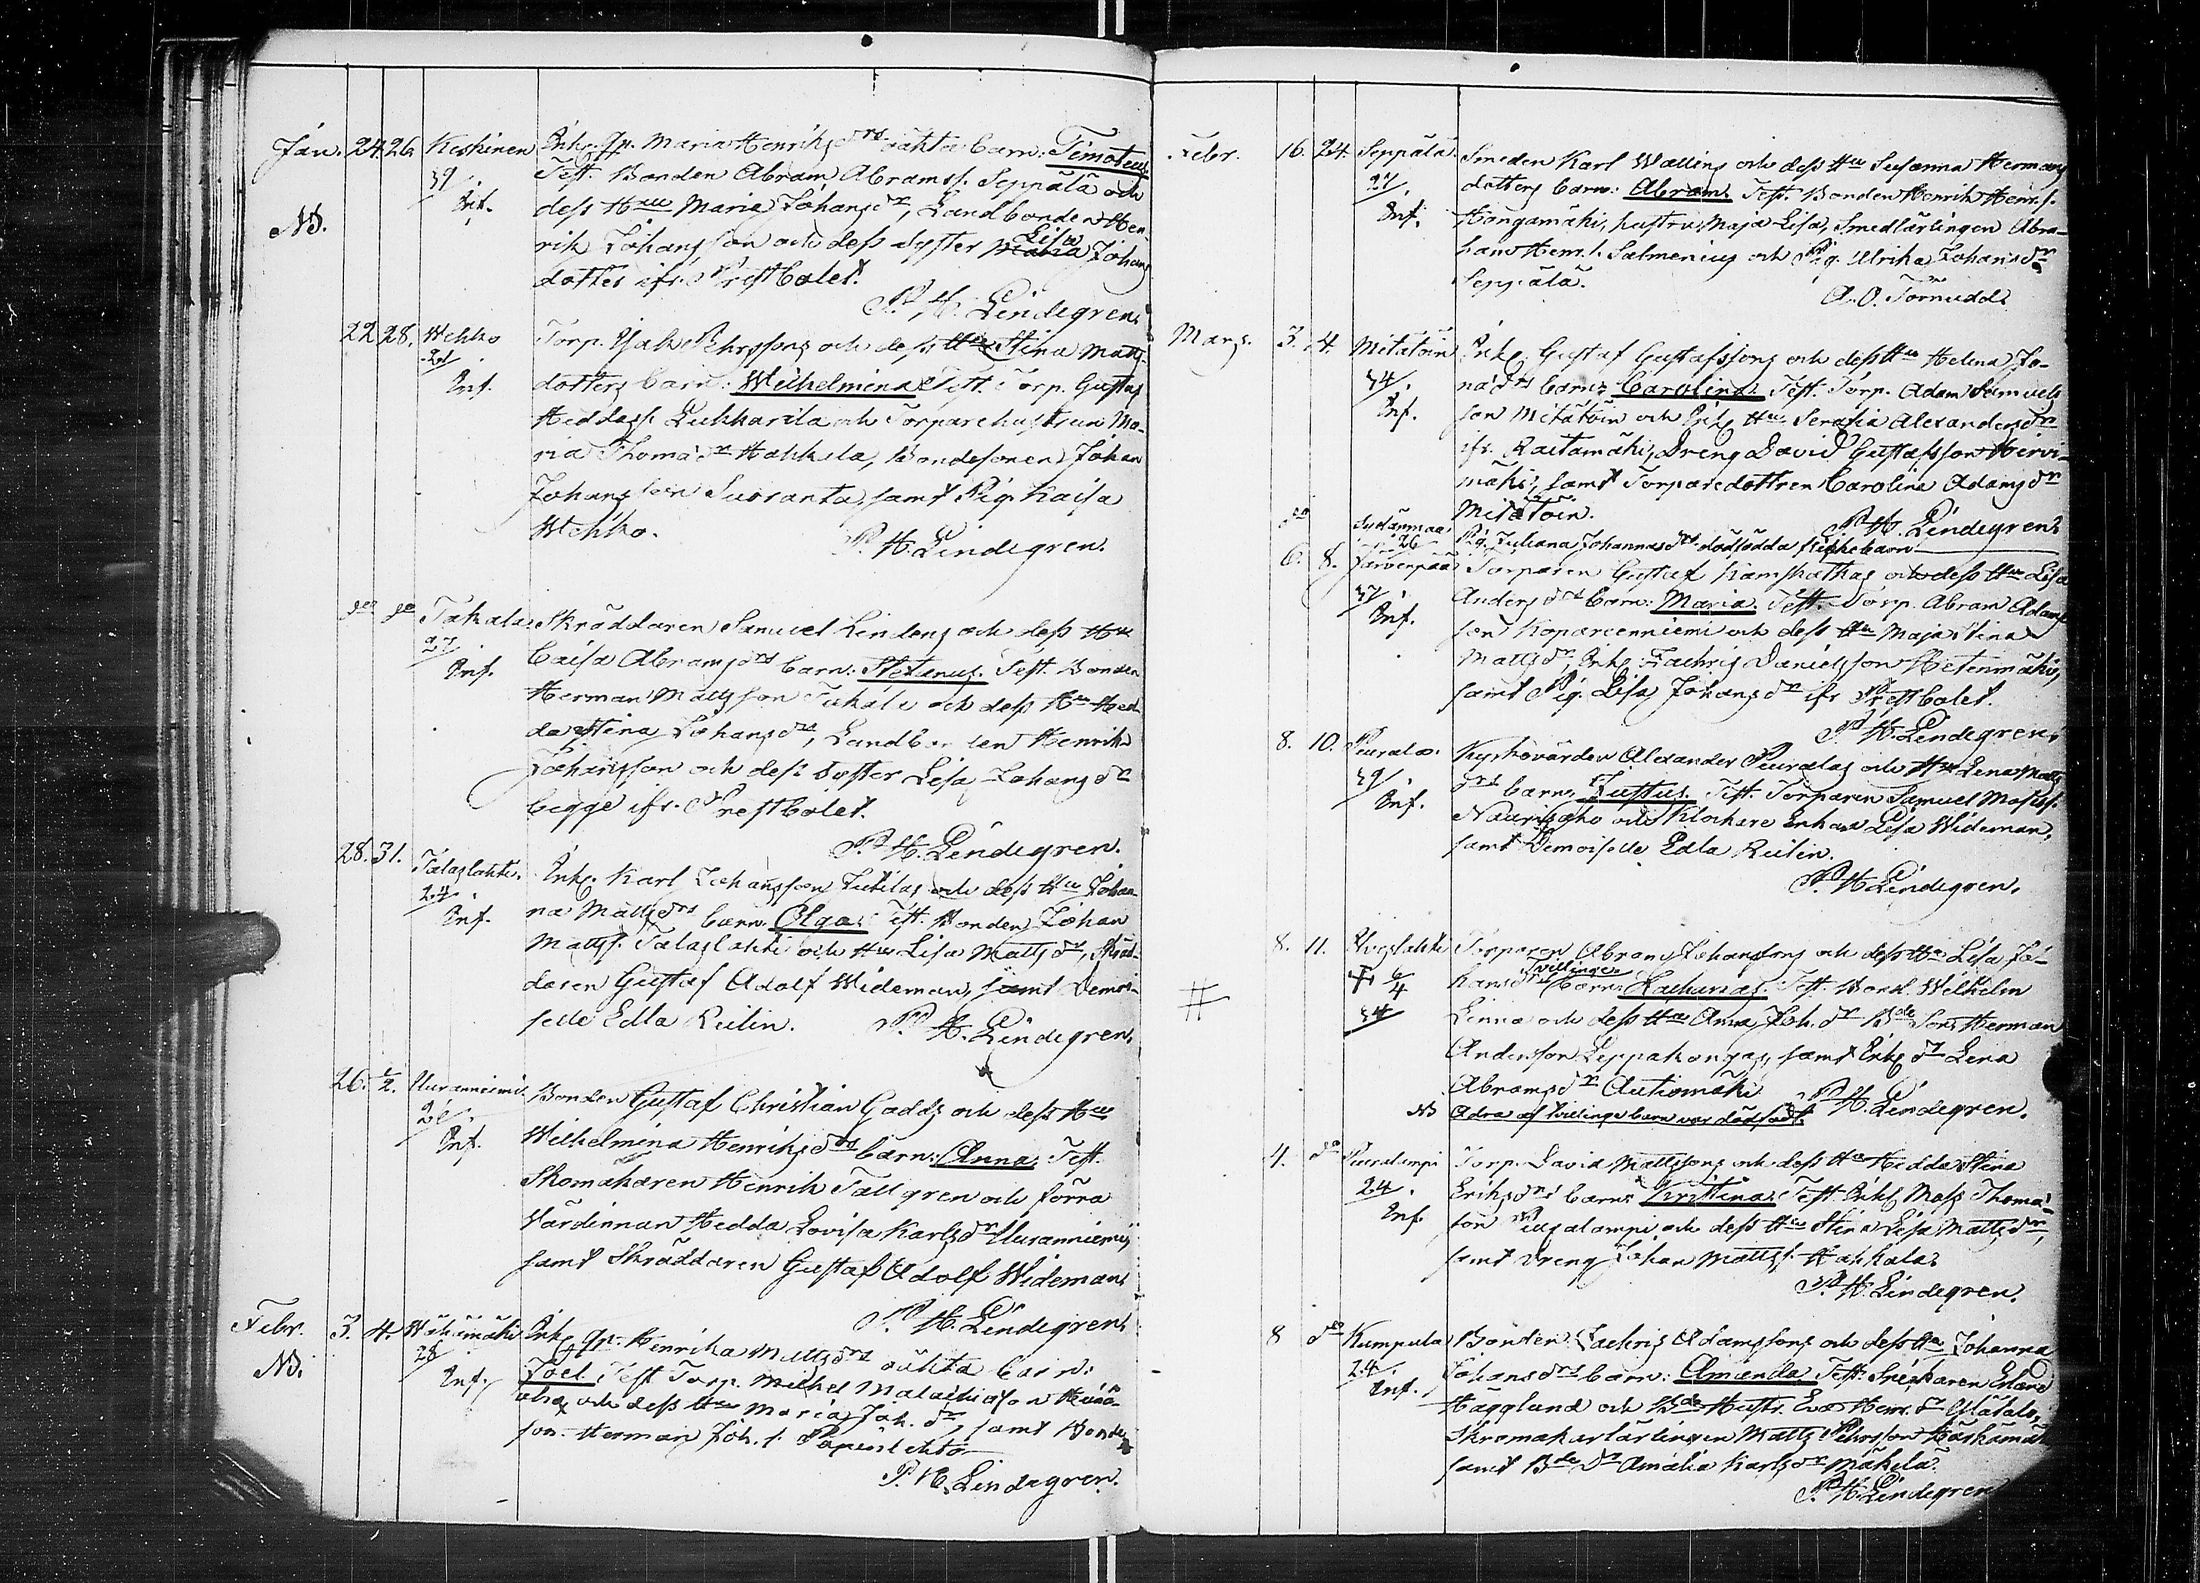 Jan. 24. 26. Keskinen Inhs. Qp. Maria Henriksdrs oäkta barn: Timoteus
39/. Test. Bonden Abram Abramss. Seppälä och
Inf. dess Hu Maria Johansdr, Landbonden Hen-
NB.
rik Johansson och dess syster Maria Lisa Johans
dotter ifr. Prestbolet.
P. H. Lindegren.
22 28. Wehko Torp. Isak Pehrssons och dess Hu Stina Matts
21/. dotters barn: Wilhelmina. Test. Torp. Gustaf
Inf. Heddass. Lukkarila och Torparehustrun Ma-
ria Thomädr Hakkila, Bondesonen Johan
Johansson Suoranta, samt Pig. Kaisa
Wehko.
P. H. Lindegren.
do do Takala Skräddaren Samuel Lindens och dess Hu
27/ Caisa Abramsdrs barn: Stefanus. Test. Bonden
Inf. Herman Mattsson Takala och dess Hu Hed-
da Stina Johansdr, Landbonden Henrik
Johansson och dess syster Lisa Johansdr
begge ifr. Prestbolet.
P. H. Lindegren.
28. 31. Talaslahti. Inhs. Karl Johansson och dess Hu Johan-
24/ na Mattsdrs barn: Olga. Test. Bonden Johan
Inf. Mattss. Talaslahti och Hu Lisa Mattsdr, Skräd-
daren Gustaf Adolf Wideman, samt Demoi-
selle Edla Reilin.
P. H. Lindegren.
26. 1/2. Uuranniemi. Bonden Gustaf Christian Gadds och dess Hu
Inf. Wilhelmina Henriksdrs barn: Anna. Test.
Skomakaren Henrik Tallgren och förra
Värdinnan Hedda Lovisa Karlsdr Uuranniemi,
samt Skräddaren Gustaf Adolf Wideman.
P. H. Lindegren.
Febr. 3. 4. Inhs. Qp. Henrika Mattsdrs oäkta barn:
NB. 28/ Inf. Joel. Test. Torp. Mikkel
och dess Hu Maria Joh. dr, samt Bonde
son Herman Joh. s.
P. H. Lindegren.
Febr. 16. 24. Seppälä. Smeden Karl Wallins och dess Hu Susanna Hermans
27/. dotters barn: Abram. Test. Bonden Henrik Henr. s.
Inf. Hongamäki, hustru Maja Lisa, Smedlärlingen Abra-
ham Henr. s. Salmenius och Pig. Ulrika Johansdr
Seppälä.
A. O. Törnudd.
Mars. 3. 4. Mitätöin Inhs. Gustaf Gustafssons och dess Hu Helena Jo-
34/. nädrs barn: Carolina. Test. Torp. Adam Samuels
Inf. son Mitätöin och Inhs. Hu Serafia Alexandersdr
ifr. Raitamäki, Dreng David Gustafsson Hirvi-
mäki, samt Torparedottren Carolina Adamsdr
Mitätöin.
P. H. Lindegren.
do Sydänmaa 26 Pig. Juliana Johannasdrs dödfödda flickebarn
6. 8. Järvenpää Torparen Gustaf Kamskatkas och dess Hu Lisa
37/. Andersdrs barn: Maria. Test. Torp. Abram Adams
Inf. son Koparcenniemi och dess Hu Maja Stina
Mattsdr, Inhs. Zachris Danielsson Hietenmäki,
samt Pig. Lisa Johansdr ifr Prestbolet.
P. H. Lindegren.
8. 10. Peurala. Kyrkovärden Alexander Peuralas och Hu Lena Matts
39/. drs barn: Justus. Test. Torparen Samuel Mosess.
Inf. och Klockare Enkan Lisa Wideman,
samt Demoiselle Edla Reilin.
P. H. Lindegren.
8. 11. Torparen Abram Johanssons och dess Hu Lisa Jo-
† 6/4 hansdrs tvillinge barn: Zacharias. Test. Bond. Wilhelm
# 34/ Linna och dess Hu Anna Joh. dr Bde Son Herman
Andersson Leppäkangas, samt Inhs dr Lena
Abramsdr Autiomäki.
P. H. Lindegren.
NB Adra af tvillinge barn var dödfödt.
4. do Peuralampi Torp. David Mattssons och dess Hu Hedda Stina
24/. Eriksdrs barn: Kristina. Test. Inhs. Mats Thomä-
Inf. son Peuralampi och dess Hu Stina Lisa Mattsdr,
samt Dreng Johan Mattss. Hakkala.
P. H. Lindegren.
8 do Kumpula Bonden Zachris Adamssons och dess Hu Johanna
24/. Johansdrs barn: Amanda. Test. Snickaren Erland
Inf. Hägglund och Bde Hustr. Eva Henr. dr Ylätalo,
Skomakarlärlingen Matts Pehrsson
samt Bde Dr Amalia Karlsdr Mäkelä.
P. H. Lindegren